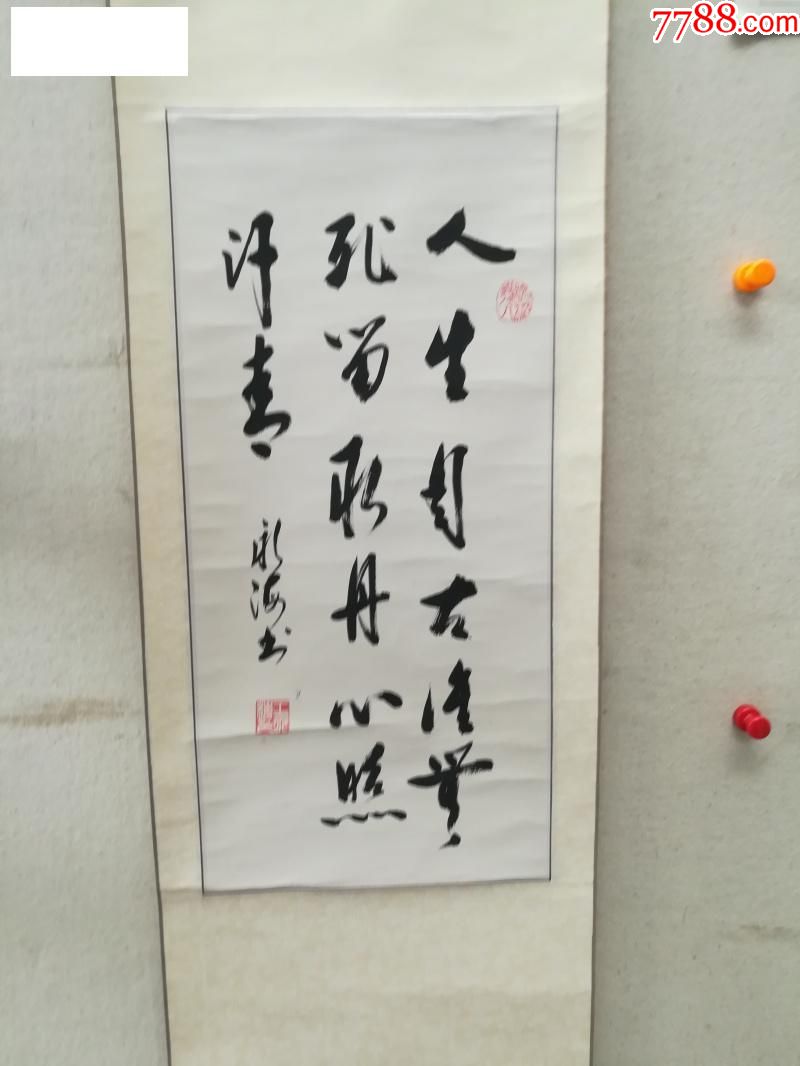 7788.com
人生自古谁無
死留取丹心照
汗青 永海书